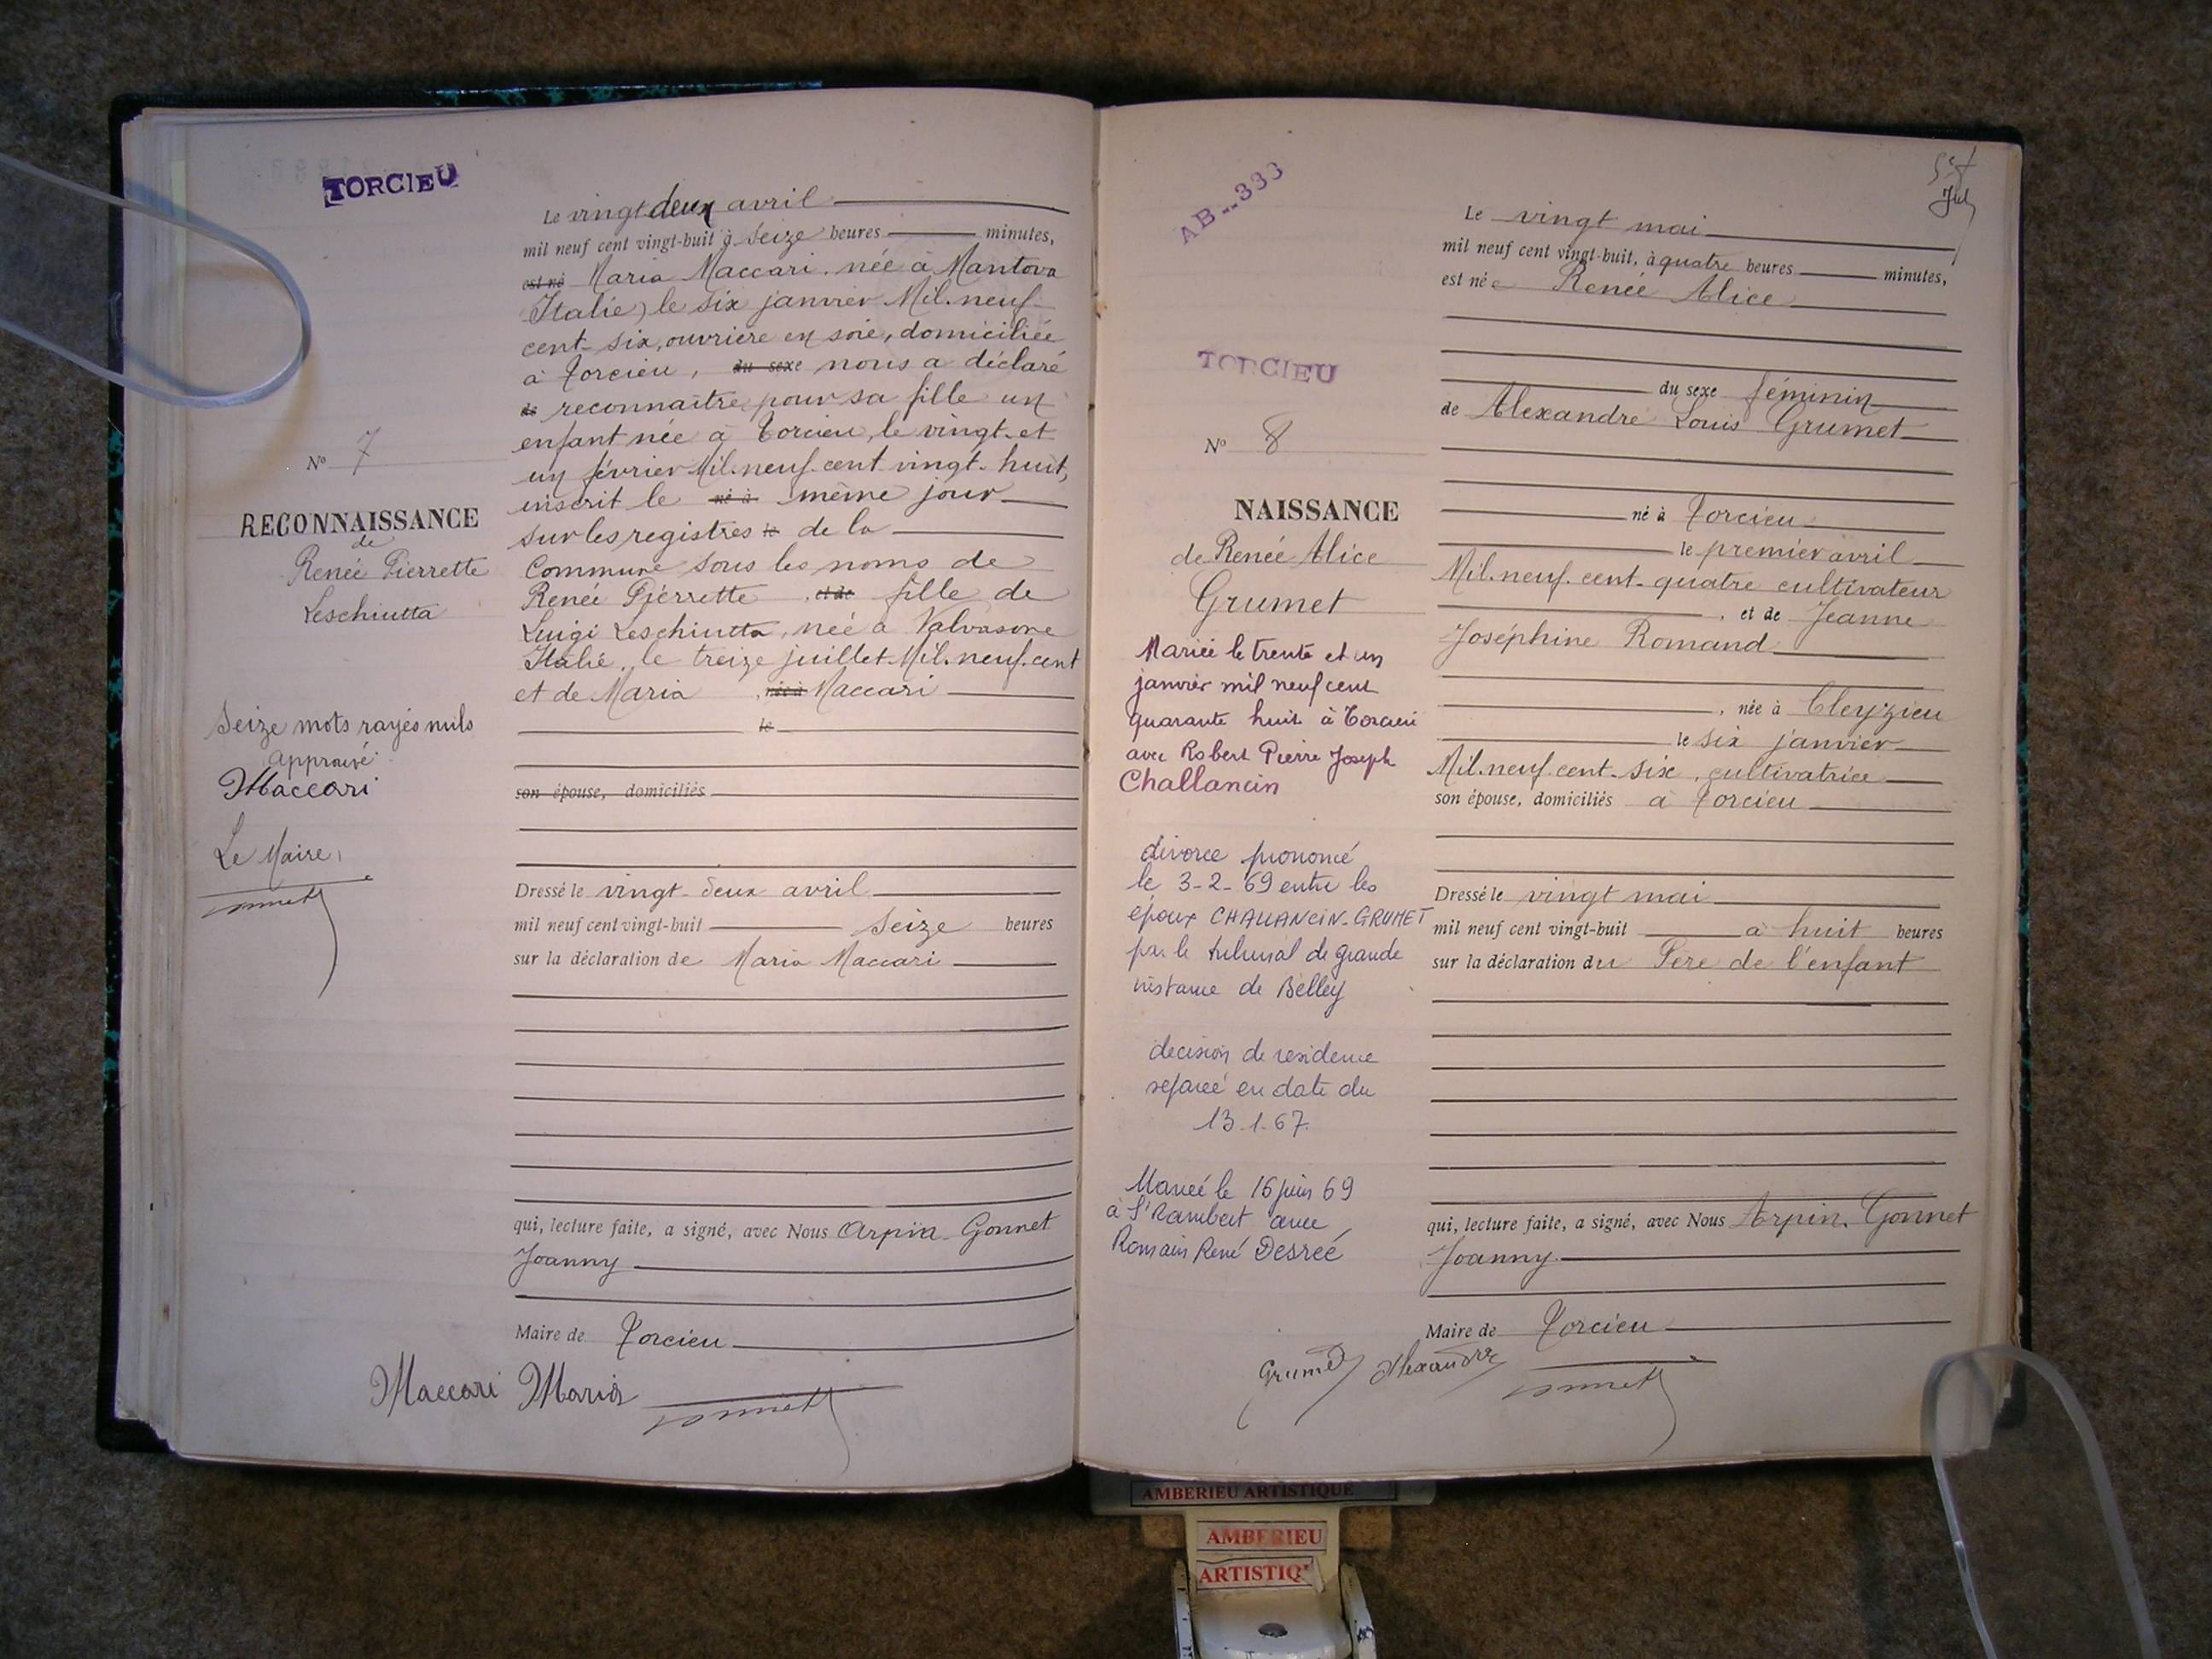 TORCIEU
N° 7
RECONNAISSANCE
de
Renée Pierrette
Leschiutta
Seize mots rayés nuls
approuvé
Maccari
Le Maire,
Le vingt deux avril
mil neuf cent vingt-huit à seize heures minutes,
est né Maria Maccari, née à Mantova
Italie) le six janvier Mil. neuf
cent-six, ouvrière en soie, domiciliée
à Torcieu, du sexe nous a déclaré
de reconnaître pour sa fille un
enfant née à Torcieu, le vingt-et
un février Mil. neuf cent vingt-huit,
inscrit le né à même jour
sur les registres le de la
Commune sous les noms de
Renée Pierrette , et de fille de
Luigi Leschiutta, née à Valvasone
Italie, le treize juillet Mil. neuf. cent
et de Maria , née à Maccari
le
son épouse, domiciliés
Dressé le vingt-deux avril
mil neuf cent vingt-huit seize heures
sur la déclaration de Maria Maccari
qui, lecture faite, a signé, avec Nous Arpin-Gonnet
Joanny
Maire de Torcieu
Maccari Maria
AB--333
TORCIEU
N° 8
NAISSANCE
de Renée Alice
Grumet
Mariée le trente et un
janvier mil neuf cent
quarante huit à Torcieu
avec Robert Pierre Joseph
Challancin
divorce prononcé
le 3-2-69 entre les
époux CHALLANCIN-GRUMET
par le tribunal de grande
instance de Belley
decision de residence
separée en date du
13-1-67.
Mariée le 16 juin 69
à St Rambert avec
Romain René Desreé
Le vingt mai
mil neuf cent vingt-huit, à quatre heures minutes,
est née Renée Alice
du sexe féminin
de Alexandre Louis Grumet
né à Torcieu
le premier avril
Mil. neuf. cent-quatre cultivateur
, et de Jeanne
Joséphine Romand
, née à Cleyzieu
le six janvier
Mil. neuf. cent-six, cultivatrice
son épouse, domiciliés à Torcieu
Dressé le vingt mai
mil neuf cent vingt-huit à huit heures
sur la déclaration du Père de l'enfant
qui, lecture faite, a signé, avec Nous Arpin-Gonnet
Joanny
Maire de Torcieu
Grumet Alexandre
AMBERIEU ARTISTIQUE
AMBERIEU
ARTISTIQ